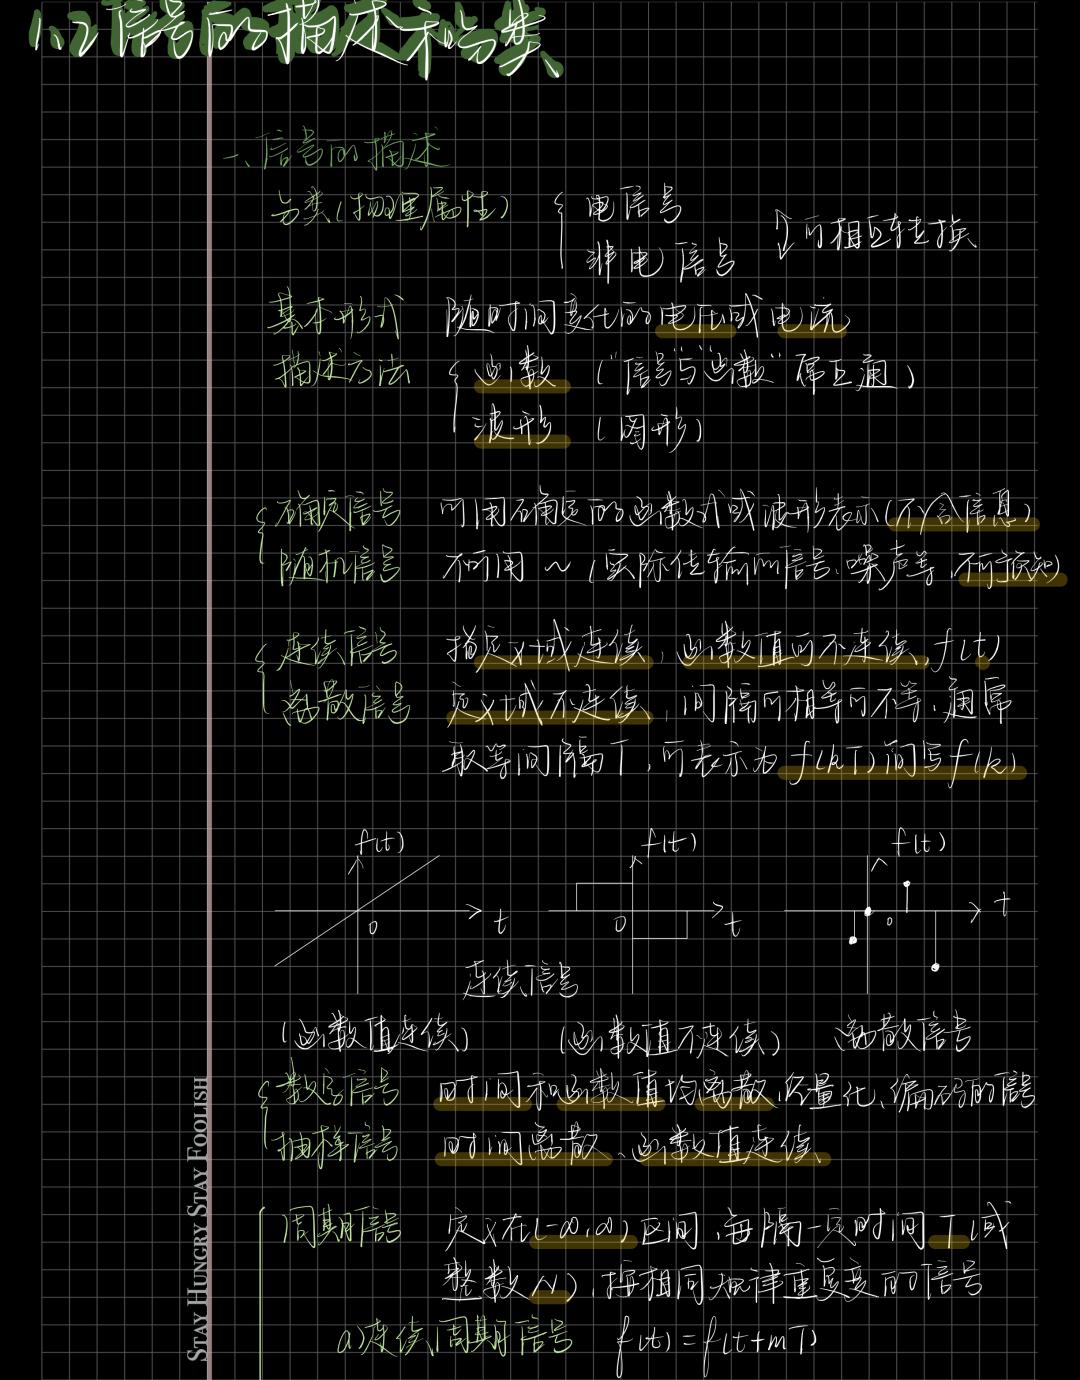 1.2 信号的描述和分类
一、信号的描述
分类(物理属性) { 电信号
非电信号 可相互转换
基本形式 随时间变化的电压或电流
描述方法 { 函数 ("信号"与"函数"常互通)
波形 (图形)
{ 确定信号 可用确定的函数式或波形表示(不含信息)
随机信号 不可用~(实际传输的信号、噪声等,不可预知)
{ 连续信号 指定义域连续,函数值可不连续,f(t)
离散信号 定义域不连续,间隔可相等可不等,通常
取等间隔T,可表示为f(kT)简写f(k)
f(t) f(t) f(t)
0 t 0 t 0 t
连续信号
(函数值连续) (函数值不连续) 离散信号
{ 数字信号 时间和函数值均离散,经量化、编码的信号
抽样信号 时间离散、函数值连续
周期信号 定义在(-∞,∞)区间,每隔一定时间T(或
整数N),按相同规律重复变的信号
a)连续周期信号 f(t)=f(t+mT)
STAY HUNGRY STAY FOOLISH